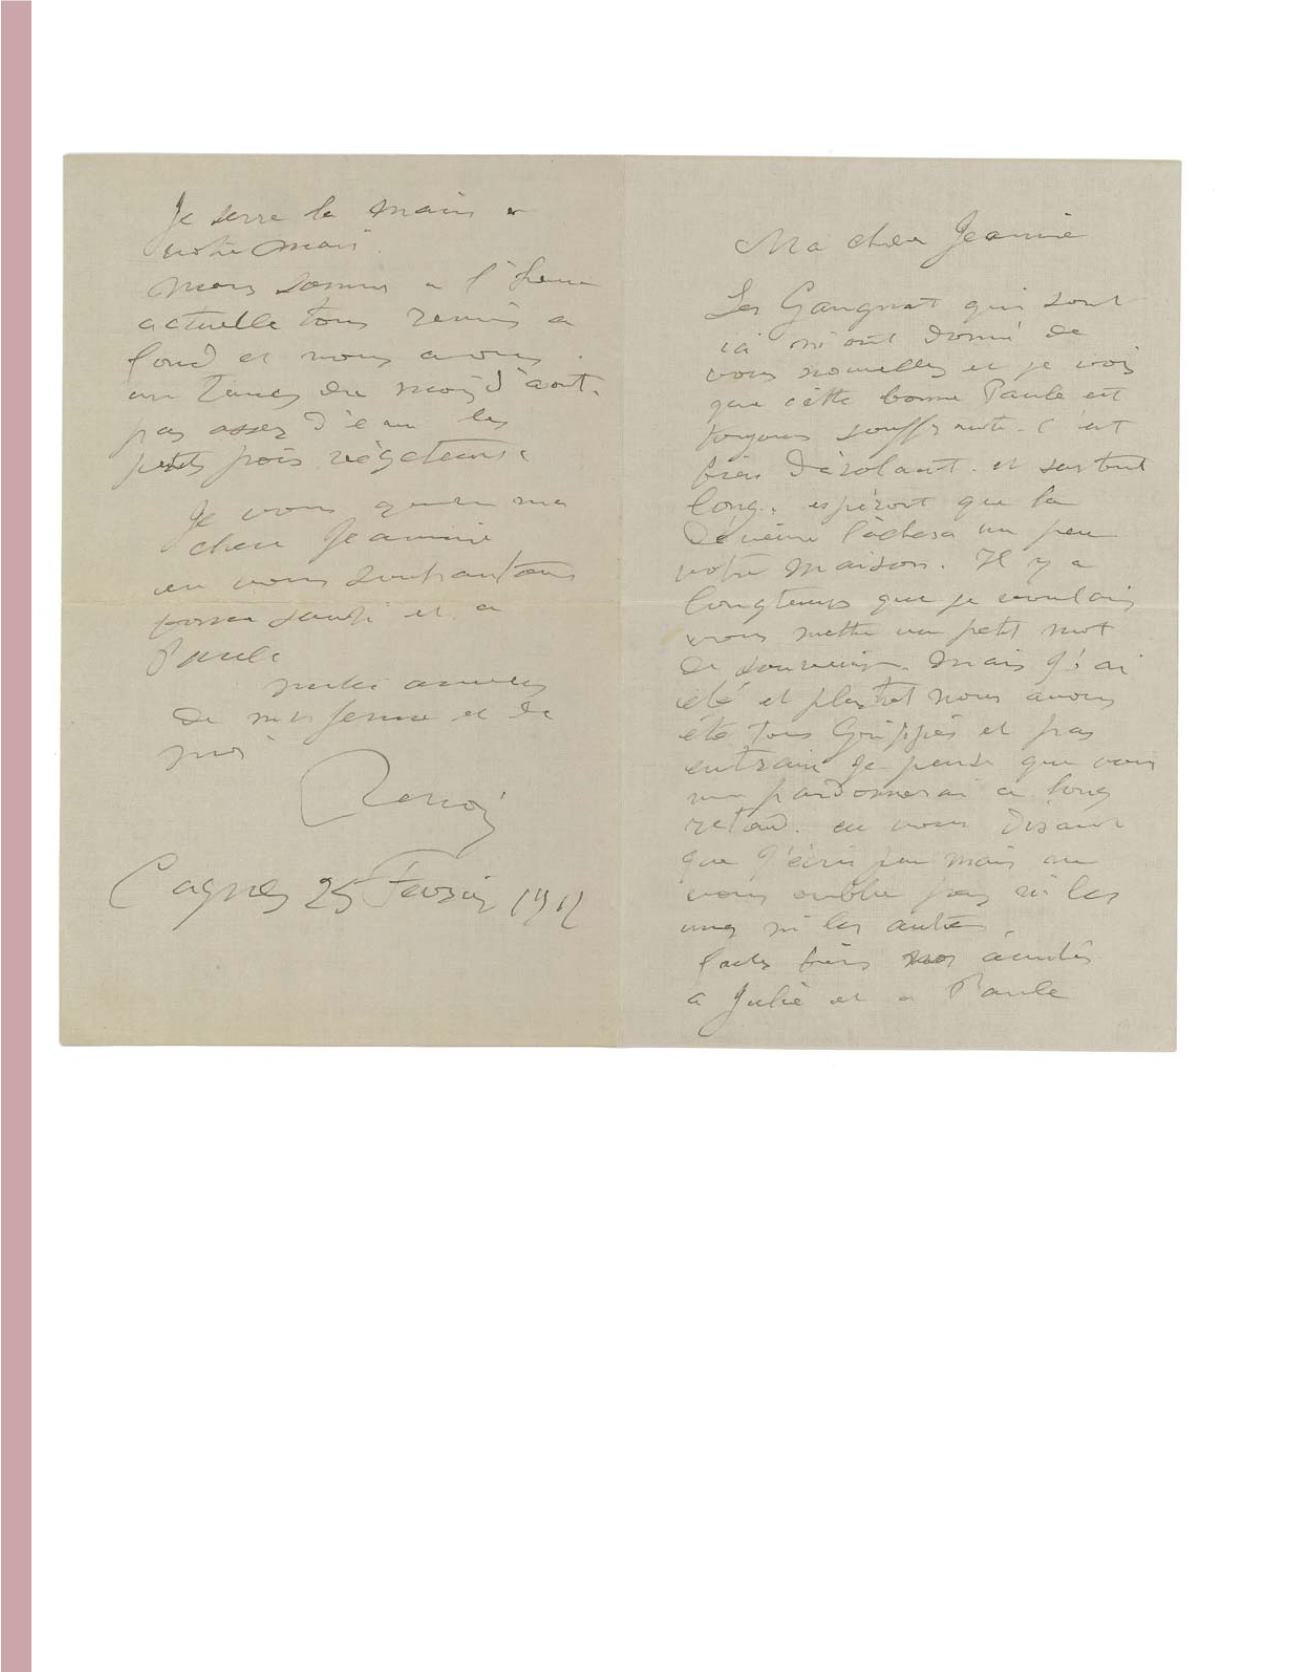 Ma chere Jeannie
Les Gangnat qui sont
ici m'ont donné de
vous nouvelles et je vois
que cette bonne Paule est
toujours souffrante. C'est
bien désolant. et surtout
long. espéront que la
déveine lâchera un peu
votre maison. Il y a
longtemps que je voulais
vous mettre un petit mot
de souvenir. mais j'ai
été et plustot nous avons
été tous Grippés et pas
entrain je pense que vous
me pardonnerai ce long
retard. en vous disant
que j'écris peu mais ne
vous oublie pas ni les
unes ni les autres
faites bien nos amitiés
a Julie et a Paule
Je serre la main a
votre mari.
Nous sommes a l'heure
actuelle tous remis a
fond et nous avons
un temps du mois d'aout.
pas assez d'eau les
petits pois végetent.
Je vous quitte ma
chere Jeannie
en vous souhaitant
santé et a
Paule
amities
de ma femme et de
moi
Renoir
Cagnes 25 Fevrier 1912